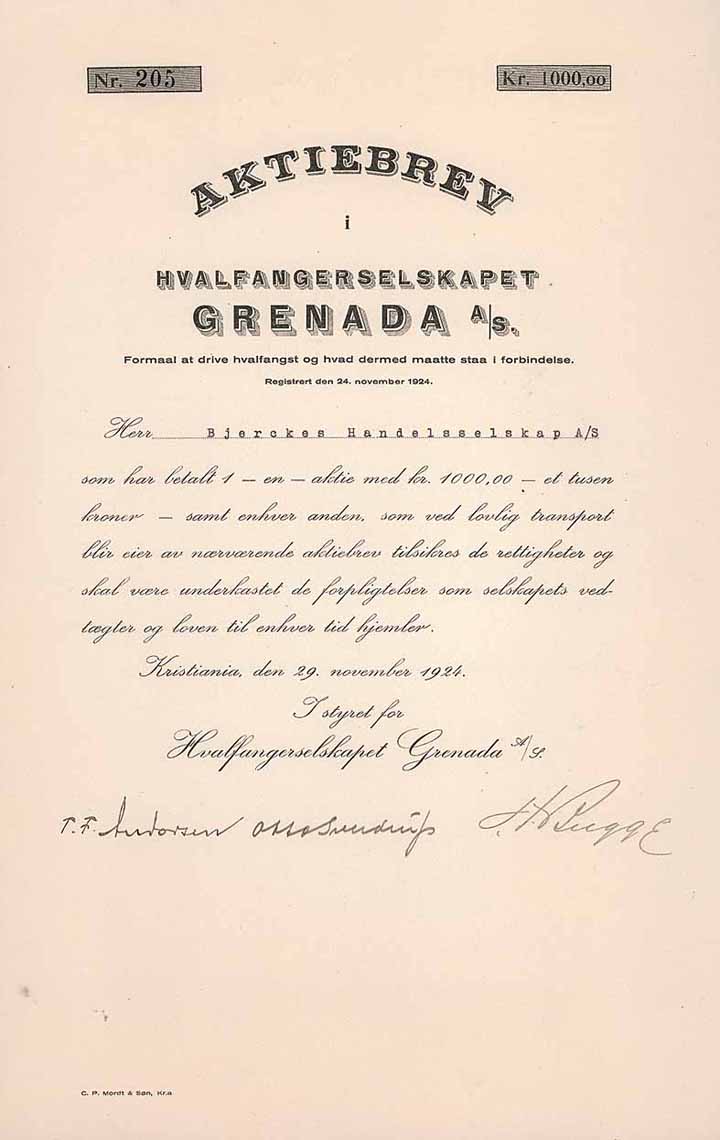 Nr. 205
Kr. 1000,00
AKTIEBREV
i
HVALFANGERSELSKAPET
GRENADA A/S.
Formaal at drive hvalfangst og hvad dermed maatte staa i forbindelse.
Registrert den 24. november 1924.
Herr Bjerckes Handelsselskap A/S
som har betalt 1 — en — aktie med kr. 1000,00 — et tusen
kroner — samt enhver anden, som ved lovlig transport
blir eier av nærværende aktiebrev tilsikres de rettigheter og
skal være underkastet de forpligtelser som selskapets ved-
tægter og loven til enhver tid hjemler.
Kristiania, den 29. november 1924.
I styret for
Hvalfangerselskapet Grenada A/S.
T. F. Andorsen Otto Sverdrup Bugge
C. P. Mordt & Søn, Kr.a